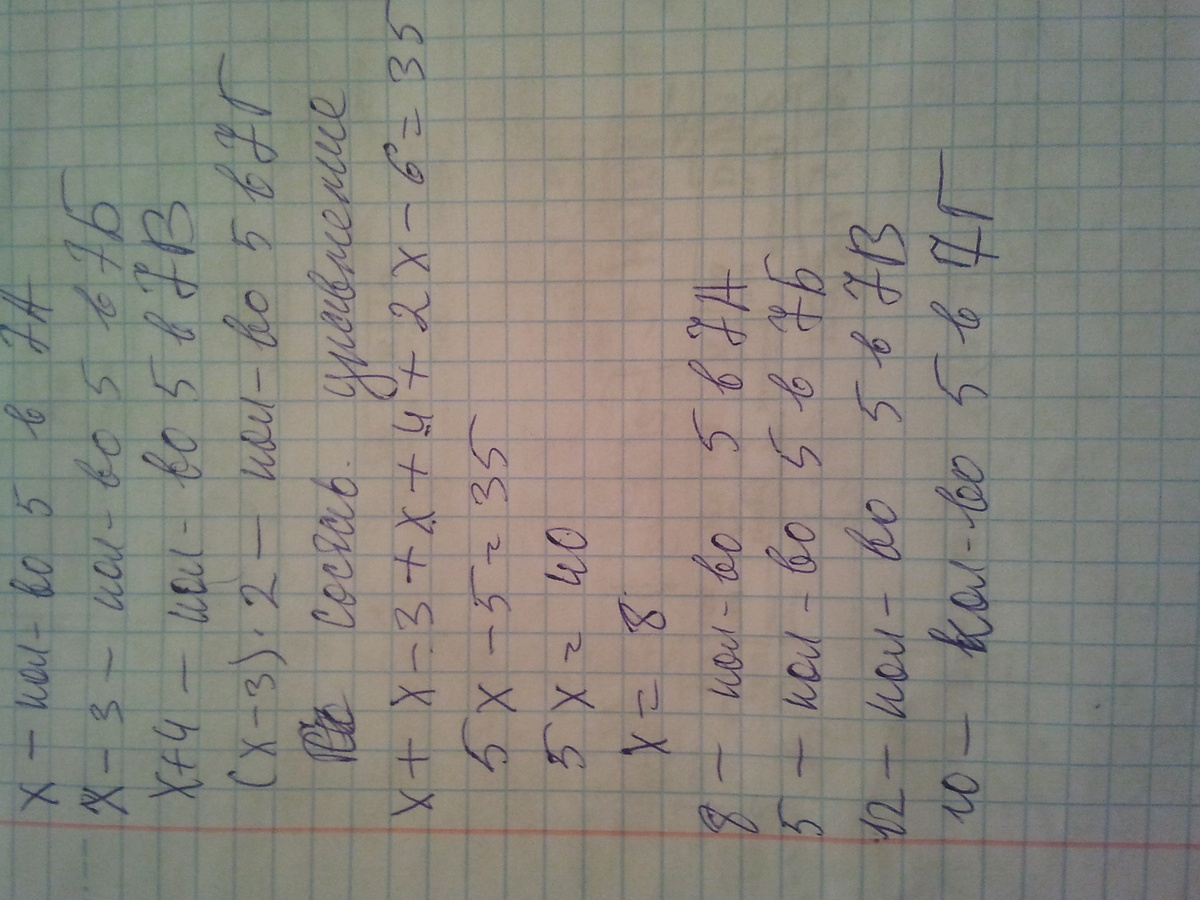 х – кол-во 5 в 7А
х – 3 – кол-во 5 в 7Б
х+4 – кол-во 5 в 7В
(х-3)·2 – кол-во 5 в 7Г
уравнение
х + х – 3 + х + 4 + 2х – 6 = 35
5х – 5 = 35
5х = 40
х = 8
8 – кол-во 5 в 7А
5 – кол-во 5 в 7Б
12 – кол-во 5 в 7В
10 – кол-во 5 в 7Г